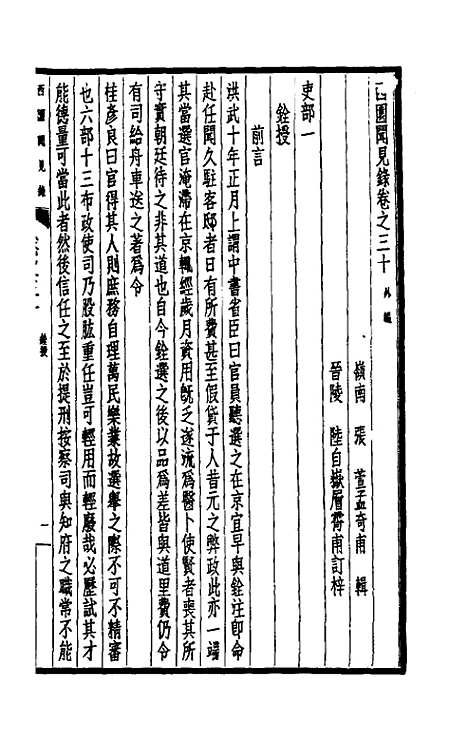 西園聞見錄卷之三十 外編
嶺南 張 萱孟奇甫 輯
晉陵 陸自嶽層霄甫訂梓
吏部一
銓授
前言
洪武十年正月上謂中書省臣曰官員聽選之在京宜早與銓注卽命
赴任聞久駐客邸者日有所費甚至假貨于人昔元之弊政此亦一端
其當選官淹滯在京輒經歲月資用旣乏遂流爲醫卜使賢者喪其所
守實朝廷待之非其道也自今銓選之後以品爲差皆與道里費仍令
有司給舟車送之著爲令
桂彥良曰官得其人則庶務自理萬民樂業故選舉之際不可不精審
也六部十三布政使司乃股肱重任豈可輕用而輕廢哉必歷試其才
能德量可當此者然後信任之至於提刑按察司與知府之職常不能
西園聞見錄
銓授
一